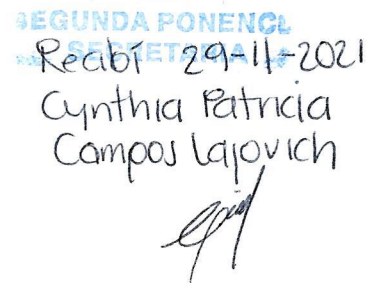 SEGUNDA PONENCI
SECRETARIA
Recibí 29-11-2021
Cynthia Patricia
Campos Lajovich